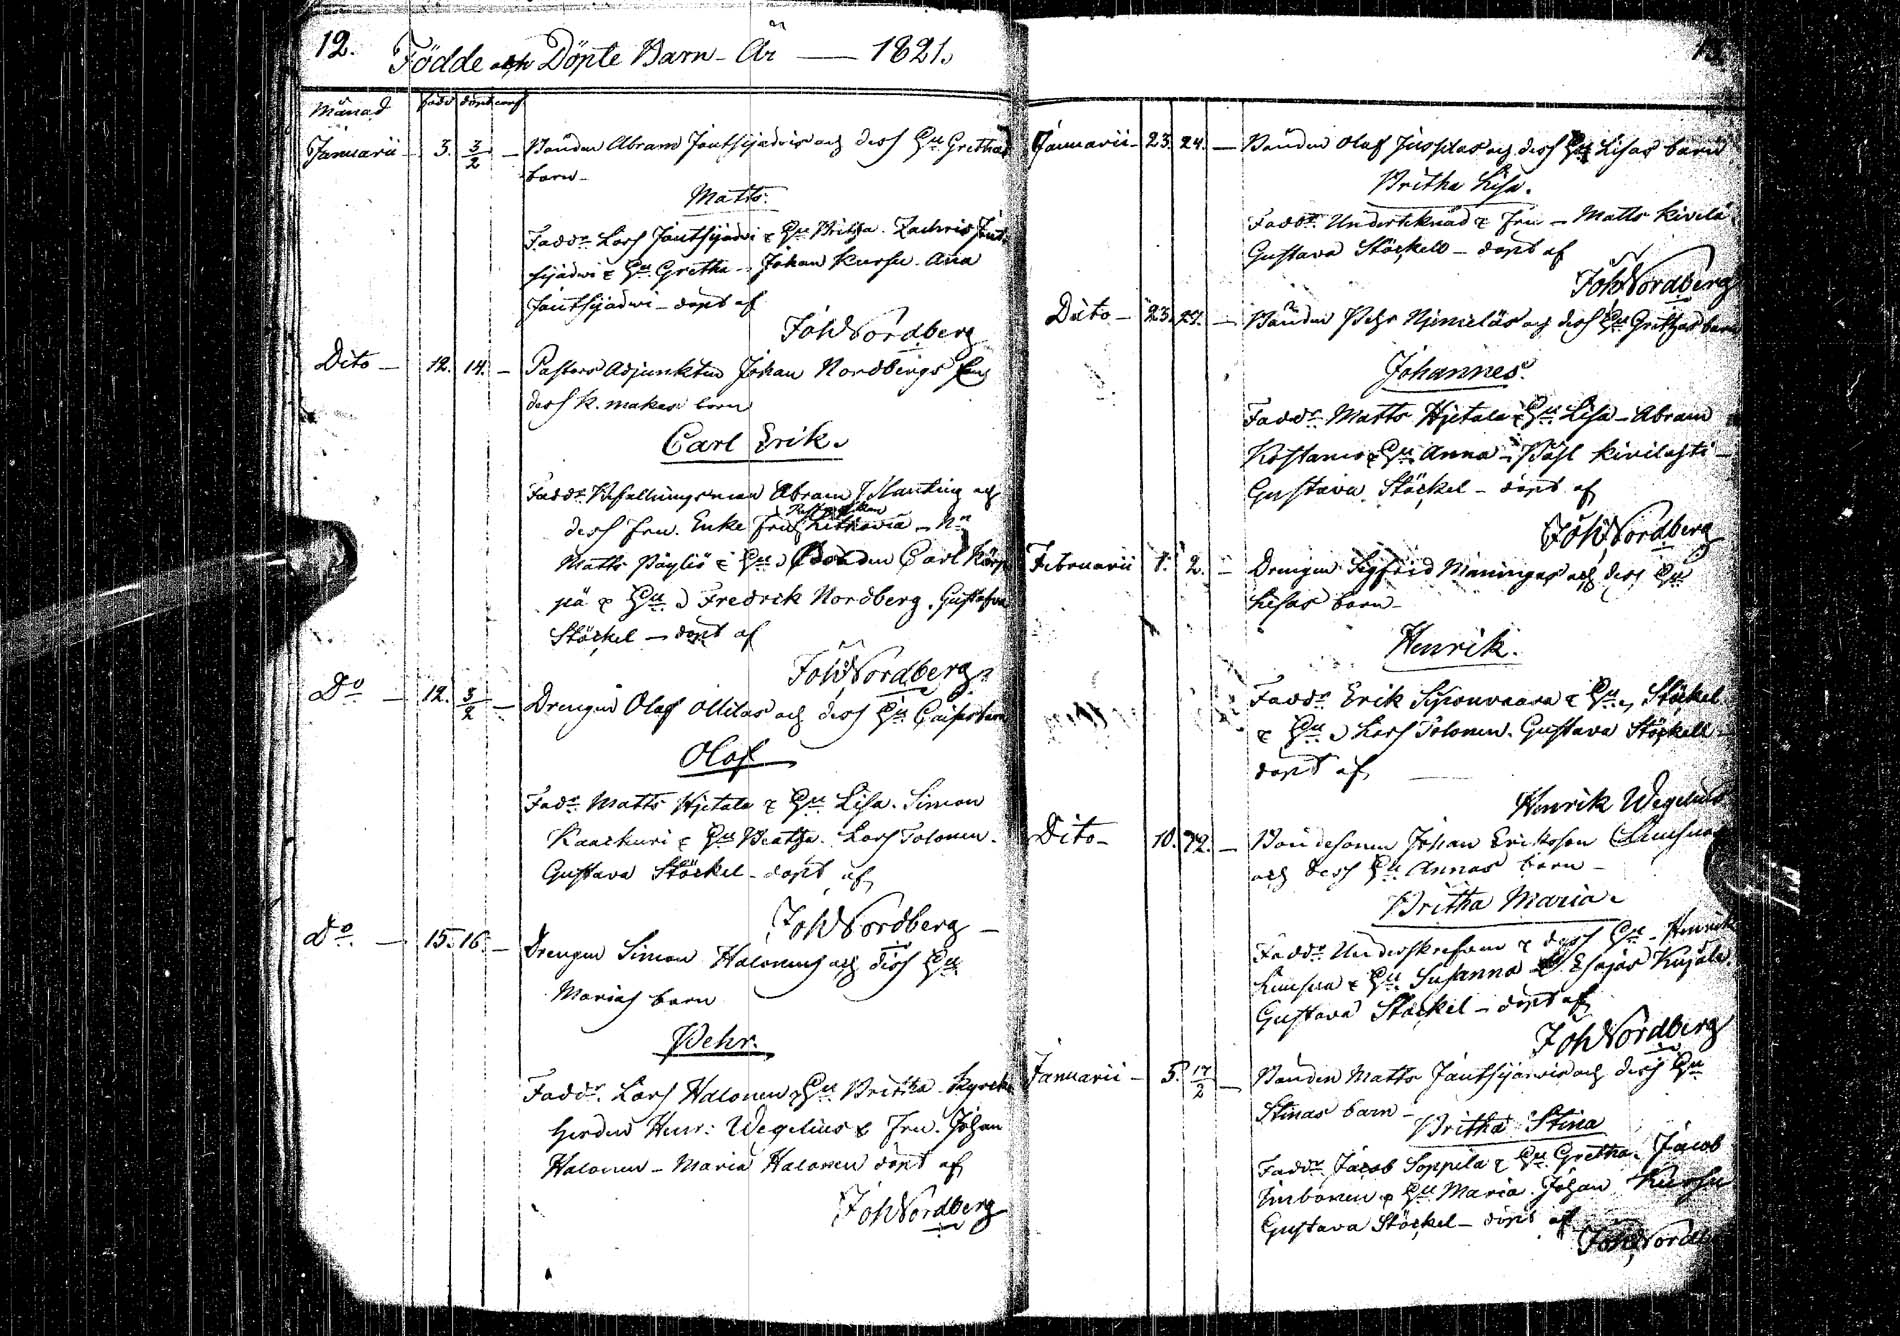 12. Födde och Döpte Barn - År — 1821.
Månad född döpt conf
Januarii - 3. 3/2 - Bonden Abram Jäntsijärvis och dess Hu Grethas
barn -
Matts.
Fadd:r Lars Jäutsijärvi & Hu Britha. Zachris Jäut-
sijärvi & Hu Gretha - Johan Kursu. Ana
Jäutsijärvi - döpt af
Joh Nordberg
Dito - 12. 14. - Pastors Adjunkten Johan Nordbergs och
dess k. makas barn
Carl Erik.
Fadd:r Befallningsman Abram Planting och
dess fru. Enke Fru
Matts Pöyliö & Hu Bonden Carl Kärp
pä & Hu Fredrik Nordberg. Gustafva
Stöckel - döpt af
Joh Nordberg
Do - 12. 3/2 - Drengen Olof Ollilas och dess Hu Caisas barn
Olof
Fadd:r Matts Hjetala & Hu Lisa. Simon
Kaackuri & Hu Beatha. Lars Tolonen.
Gustava Stöckel - döpt af
Joh Nordberg -
Do - 15. 16. - Drengen Simon Halonens och dess Hu
Marias barn
Pehr.
Fadd:r Lars Halonen & Hu Britha. Kyrko
herden Henr: Wegelius & Fru. Johan
Halonen - Maria Halonen döpt af
Joh Nordberg
13.
Januarii - 23. 24. - Bonden Olof Jusslas och dess Hu Lisas barn
Britha Lisa.
Fadd:r Underteknad & fru - Matts Kivilä
Gustava Stöckell - döpt af
Joh Nordberg
Dito - 23. 27. - Bonden Pehr Njemeläs och dess Hu Grethas barn
Johannes.
Fadd:r Matts Hjetala & Hu Lisa - Abram
Kostamo & Hu Anna - Påhl Kivilahti -
Gustava Stöckel - döpt af
Joh Nordberg
Februarii 1. 2. - Drengen Sigfrid Maningas och dess Hu
Lisas barn -
Henrik.
Fadd:r Erik Siponvaara & Hu, Stöckel
& Hu Lars Tolonen. Gustava Stöckell -
döpt af
Henrik Wegelius
Dito - 10. 12. - Bondesonen Johan Eriksson
och dess Hu Annas barn -
Britha Maria.
Fadd:r Underskrefven & dess Hu - Henrik
& Hu Susanna - Esajas Kujala.
Gustava Stöckel - döpt af
Joh Nordberg
Januarii - 5. 17/2 - Bonden Matts Jäutsijärvis och dess Hu
Stinas barn -
Britha Stina
Fadd:r Jacob Soppela & Hu Gretha. Jacob
Imbonen & Hu Maria Johan Kursu
Gustava Stöckel - döpt af
Joh Nordb